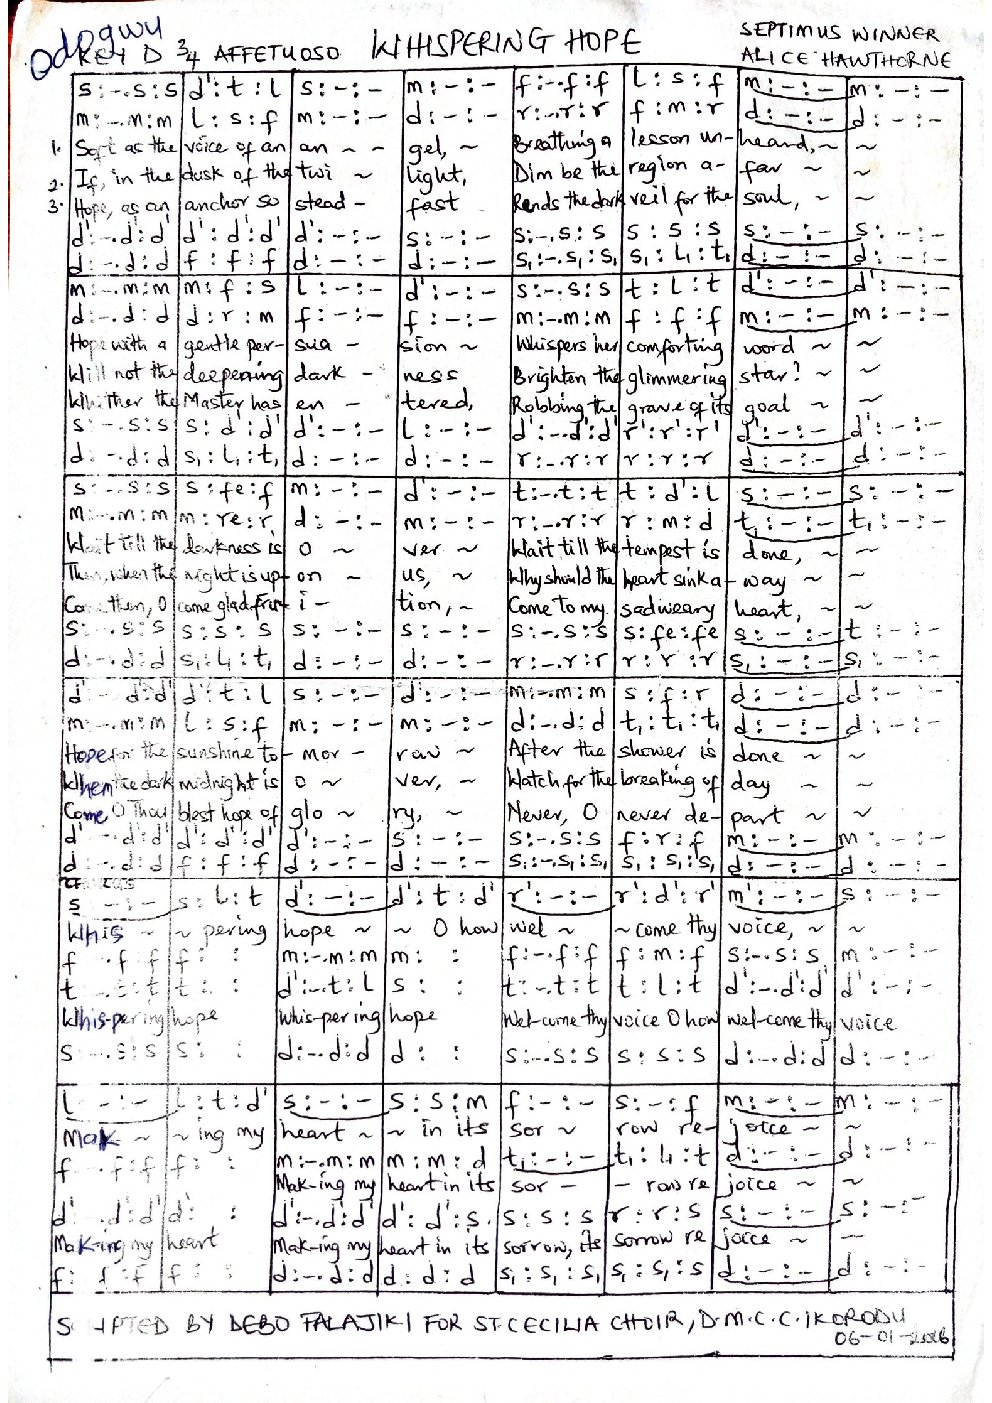 Odogwu
KEY D 3/4 AFFETUOSO WHISPERING HOPE
SEPTIMUS WINNER
ALICE HAWTHORNE
s:-.s:s d':t:l s:-:- m:-:- f:-.f:f l:s:f m:-:- m:-:-
m:-.m:m l:s:f m:-:- d:-:- r:-.r:r f:m:r d:-:- d:-:-
1. Soft as the voice of an an ~ ~ gel, ~ Breathing a lesson un- heard, ~ ~
2. If, in the dusk of the twi ~ light, Dim be the region a- far ~ ~
3. Hope, as an anchor so stead - fast Rends the dark veil for the soul, ~ ~
d':-.d':d' d':d':d' d':-:- s:-:- s:-.s:s s:s:s s:-:- s:-:-
d:-.d:d f:f:f d:-:- d:-:- s₁:-.s₁:s₁ s₁:l₁:t₁ d:-:- d:-:-
m:-.m:m m:f:s l:-:- d':-:- s:-.s:s t:l:t d':-:- d':-:-
d:-.d:d d:r:m f:-:- f:-:- m:-.m:m f:f:f m:-:- m:-:-
Hope with a gentle per- sua - sion ~ Whispers her comforting word ~ ~
Will not the deepening dark - ness Brighten the glimmering star? ~ ~
Whither the Master has en - tered, Robbing the grave of its goal ~ ~
s:-.s:s s:d':d' d':-:- l:-:- d':-.d':d' r':r':r' d':-:- d':-:-
d:-.d:d s₁:l₁:t₁ d:-:- d:-:- r:-.r:r r:r:r d:-:- d:-:-
s:-.s:s s:fe:f m:-:- d':-:- t:-.t:t t:d':l s:-:- s:-:-
m:-.m:m m:re:r d:-:- m:-:- r:-.r:r r:m:d t₁:-:- t₁:-:-
Wait till the darkness is o ~ ver ~ Wait till the tempest is done, ~ ~
Then, when the night is up- on ~ us, ~ Why should the heart sink a- way ~ ~
Come then, O come glad fru- i - tion, ~ Come to my sad weary heart, ~ ~
s:-.s:s s:s:s s:-:- s:-:- s:-.s:s s:fe:fe s:-:- t:-:-
d:-.d:d s₁:l₁:t₁ d:-:- d:-:- r:-.r:r r:r:r s₁:-:- s₁:-:-
d' -.d':d' d':t:l s:-:- d':-:- m:-.m:m s:f:r d:-:- d:-:-
m:-.m:m l:s:f m:-:- m:-:- d:-.d:d t₁:t₁:t₁ d:-:- d:-:-
Hope for the sunshine to- mor - row ~ After the shower is done ~ ~
When the dark midnight is o ~ ver, ~ Watch for the breaking of day ~ ~
Come, O Thou blest hope of glo ~ ry, ~ Never, O never de- part ~ ~
d' -.d':d' d':d':d' d':-:- s:-:- s:-.s:s f:r:f m:-:- m:-:-
d:-.d:d f:f:f d:-:- d:-:- s₁:-.s₁:s₁ s₁:s₁:s₁ d:-:- d:-:-
CHORUS
s -:- s:l:t d':-:- d':t:d' r':-:- r':d':r' m':-:- s:-:-
Whis ~ ~ pering hope ~ ~ O how wel ~ ~ come thy voice, ~ ~
f -.f:f f: : m:-.m:m m: : f:-.f:f f:m:f s:-.s:s m:-:-
t:-.t:t t: : d':-.t:l s: : t:-.t:t t:l:t d':-.d':d' d':-:-
Whis-pering hope Whis-pering hope Wel-come thy voice O how wel-come thy voice
s -.s:s s: : d:-.d:d d: : s:-.s:s s:s:s d:-.d:d d:-:-
l -:- l:t:d' s:-:- s:s:m f:-:- s:-:f m:-:- m:-:-
Mak ~ ~ ing my heart ~ ~ in its sor ~ row re- joice ~ ~
f -.f:f f: : m:-.m:m m:m:d t₁:-:- t₁:l₁:t d:-:- d:-:-
Mak-ing my heart in its sor - - row re joice ~ ~
d':-.d':d' d': : d':-.d':d' d':d':s s:s:s r:r:s s:-:- s:-:-
Mak-ing my heart Mak-ing my heart in its sorrow, its sorrow re joice ~ ~
f: f:f f: : d:-.d:d d:d:d s₁:s₁:s₁ s₁:s₁:s d:-:- d:-:-
SCRIPTED BY DEBO FALAJIKI FOR ST.CECILIA CHOIR, D.M.C.C. IKORODU
06-01-2026